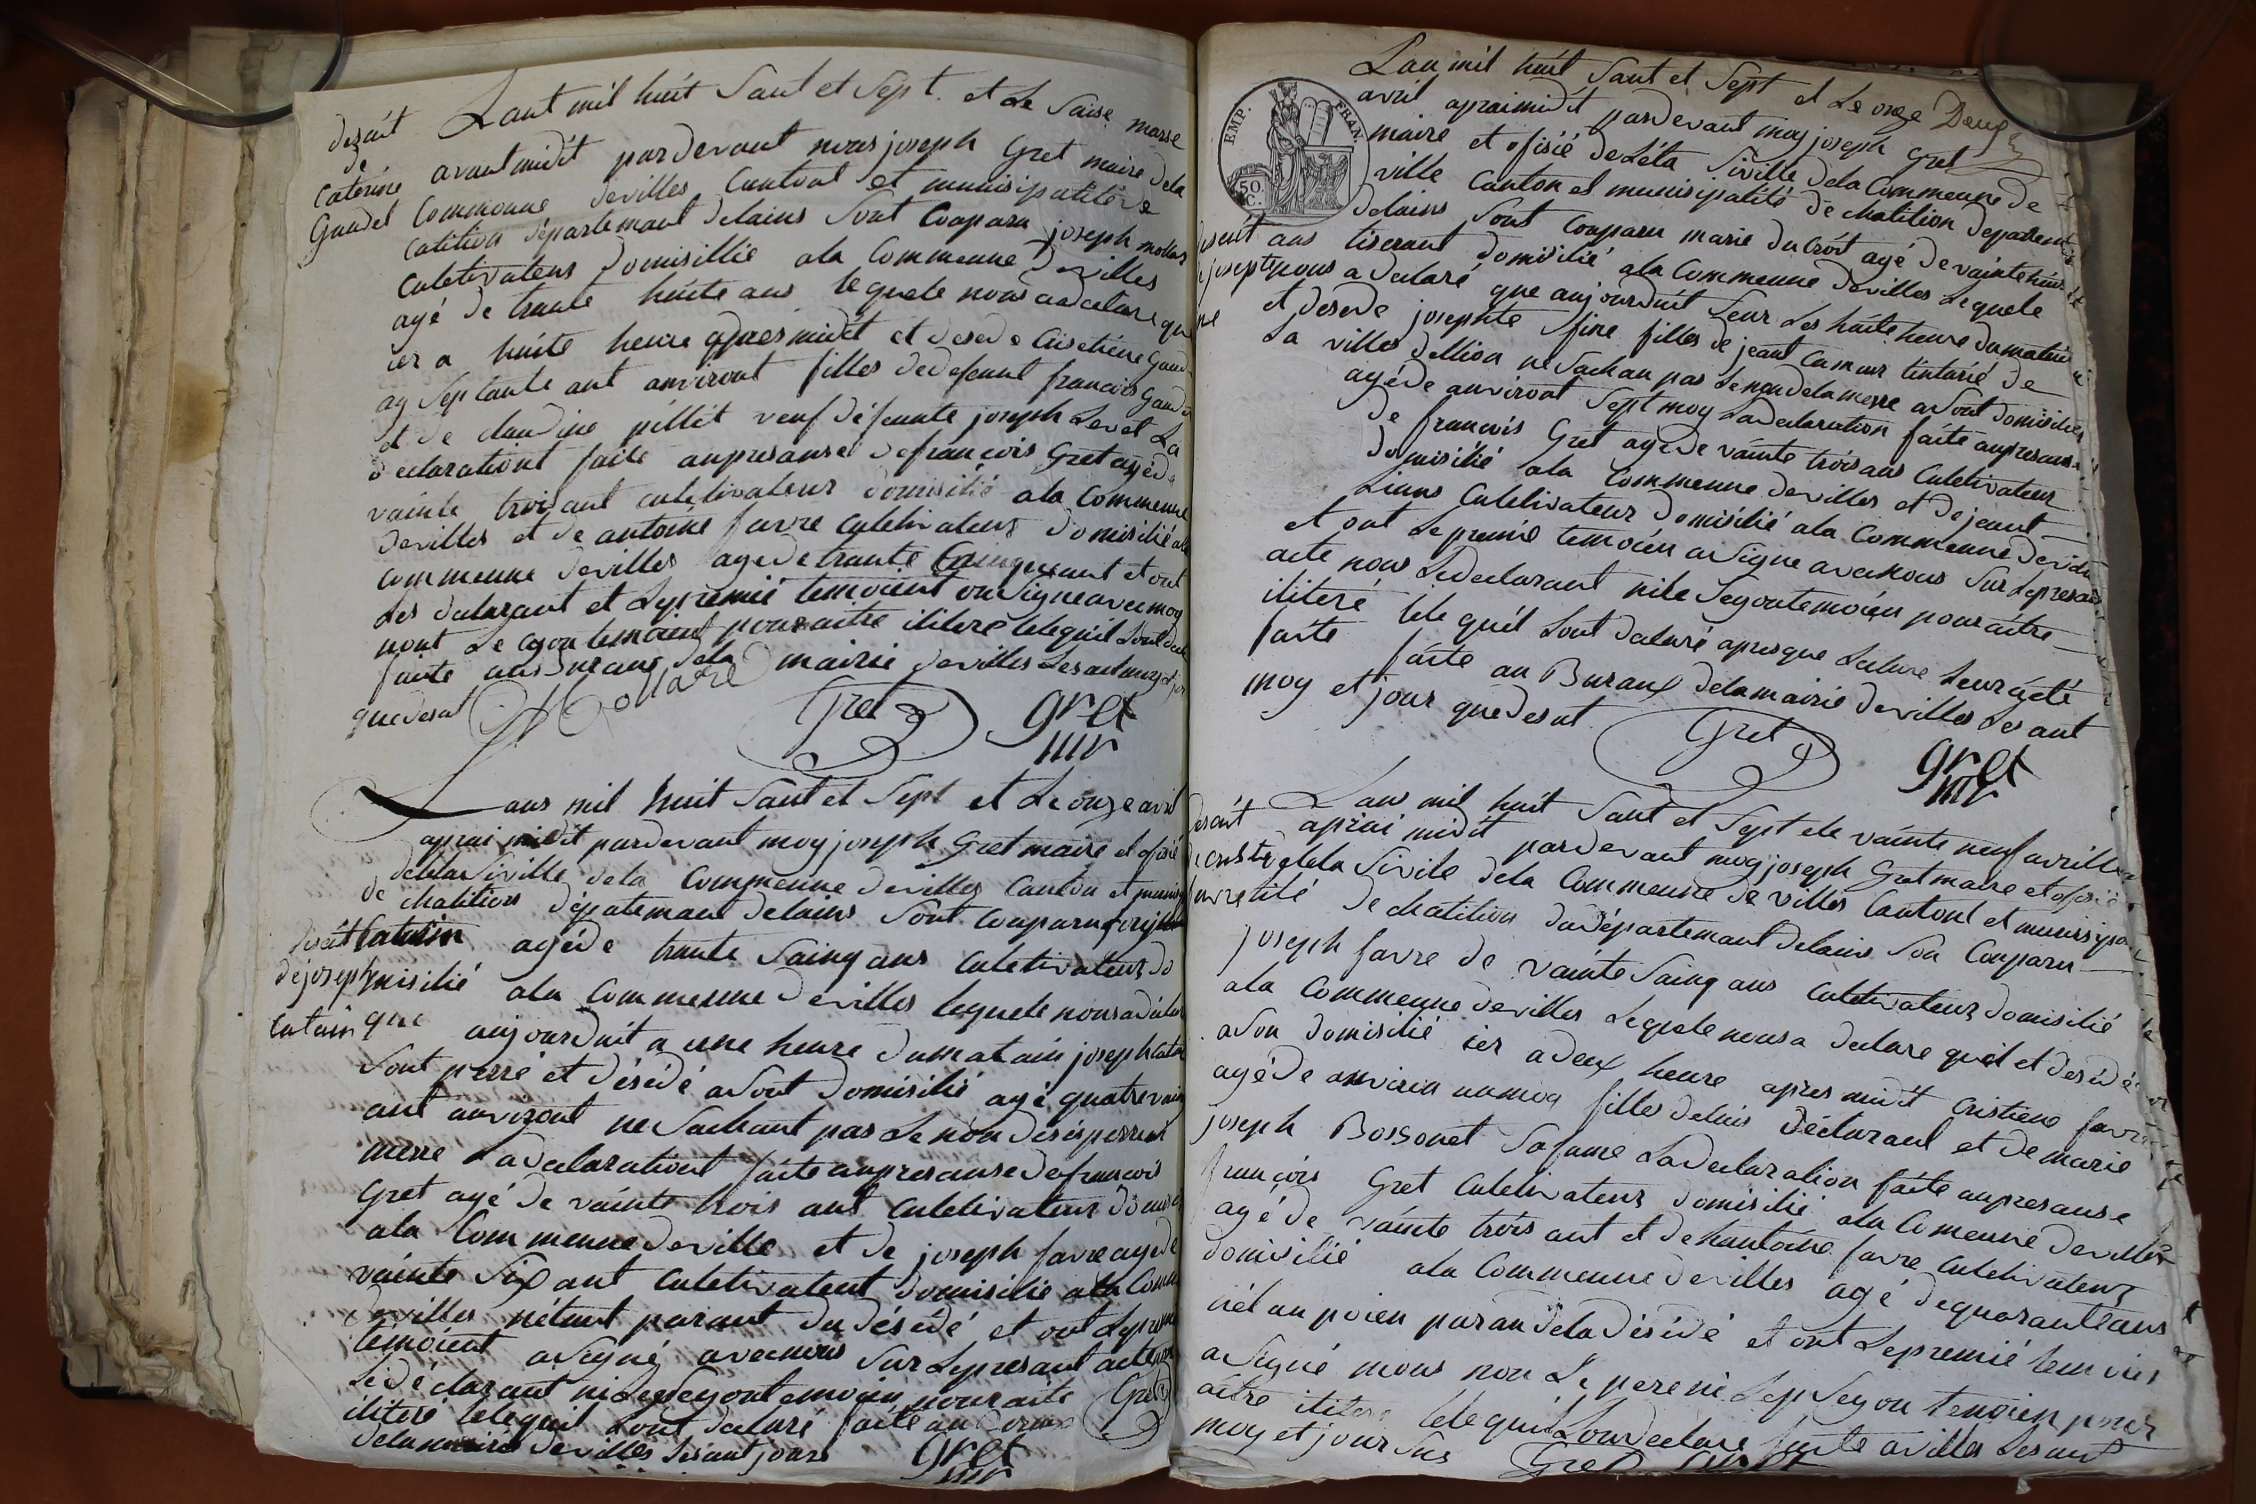 desait
de
Caterine
Gaudet
Lant mil huit Sant et Sept. et Le Saise marse
avant midit pardevant nous joseph Gret maire dela
Commonne devilles Cantont et munisipalité de
Catition département delains Sont Conparu joseph
Culetivateur domisillie ala Commenne devilles
agé de trante huite ans lequele nous a declare que
ier a huite heure apres midit et desede
ag Septante ant anviront filles dedefeunt francois Gaudet
et de claudine pillit veuf défeunte joseph Levet La
declarationt faite aupresanse de francois Gret agéde
vainte trois ant culetivateur domisilié ala Commenne
devilles et de antoine favre Culetivateur domisilié ala
Commenne devilles agé de trante Cainq ant et ont
Les declarant et Lepremié temoient on Signe avec moy
nont Le Cegon temoient pour aitre ilitere telequil Lont
faite aus Buraux dela mairie devilles Les ant moy et jour
que desut
Gret
gret
mr
Lans mil huit Sant et Sept et Le onze avril
aprai midit pardevant moy joseph Gret maire et ofisié
deleta Siville dela Commenne devilles Canton et
de chatition départemant delains Sont Conparu
desait
déjoseph
Catain
Catain agéde trante Sainq ans Culetivateur do
misilié ala Commenne devilles lequele nous a déclaré
que aujourduit a une heure dumatain joseph
Sont perre et désédé a Sont domisilié agé quatrevain
ant anviront ne Sachant pas Le non desesperre
merre Ladeclarationt faite aupresanse de francois
Gret agé de vainte trois ant Culetivateur
ala Commenne deville et de joseph favre agé de
vainte Six ant Culetivateut domisilie ala
devilles nétant parant du désédé et ont Le
temoient a Segné avec nous Sur Lepresant acte
Le déclarant ni Le Segont emoien pour aite
ilitere telequil Lont declaré faite au
delamairie devilles Les ant jours
Gret
gret
mr
Lan mil huit Sant et Sept et Le onze
avril apraimidit pardevant moy joseph Gret
maire et ofisié deléta Siville dela Commenne de
ville Canton et munisipatité de chatition
delains Sont Conparu marie ducrot agé de vainte huit
EMP. FRAN.
50.
C.
ans tiserant domisilié ala Commenne devilles Lequele
nous a declaré que aujourduit Seur Les huite heure dumatin
et desede josephte fine filles de jeant
La villes dellion ne Sachan pas Le non dela merre a Sont domisilié
agéde anviront Sept moy Ladeclaration faite aupresanse
de francois Gret agé de vainte trois ans Culetivateur
domisilié ala Commenne devilles et dejeant
Culetivateur domisilié ala Commenne
et ont Le premié temoien a Signe avec nous Sur Lepresant
acte nous Ledeclarant nile Segontemoien pour aitre
ilitere tele quil Lont declaré apresque Lecture Leur a été
faite faite au Buraux delamairie devilles Les ant
moy et jour quedesut
Gret
gret
mr
desait
favre
Lans mil huit Sant et Sept ele vainte neuf avrille
aprai midit pardevant moy joseph Gret maire et ofisié
deleta Sivile dela Commenne de villes Cantont et
tité de chatition du département delains Son Conparu
joseph favre de vainte Sainq ans Culetivateur domisilié
ala Commenne devilles Lequele nous a declare quil et désédé
a Son domisilié ier a deux heure apres midit Cristiene favre
agéde anviron un moa filles deluis déclarant et de marie
joseph Bossonet Safame Ladeclaration faite aupresanse
francois Gret Culetivateur domisilié ala Comenne devilles
agé de vainte trois ant et de hantoine favre Culetivateur
domisilié ala Commenne devilles agé dequarante ans
nétan poien paran dela désédé et ont Lepremié temoien
a Signé nous non Le pere ni Lep Segon temoien pour
aitre ilitere tele quil Lon declare faite a villes Les ant
moy et jour Sus
Gret